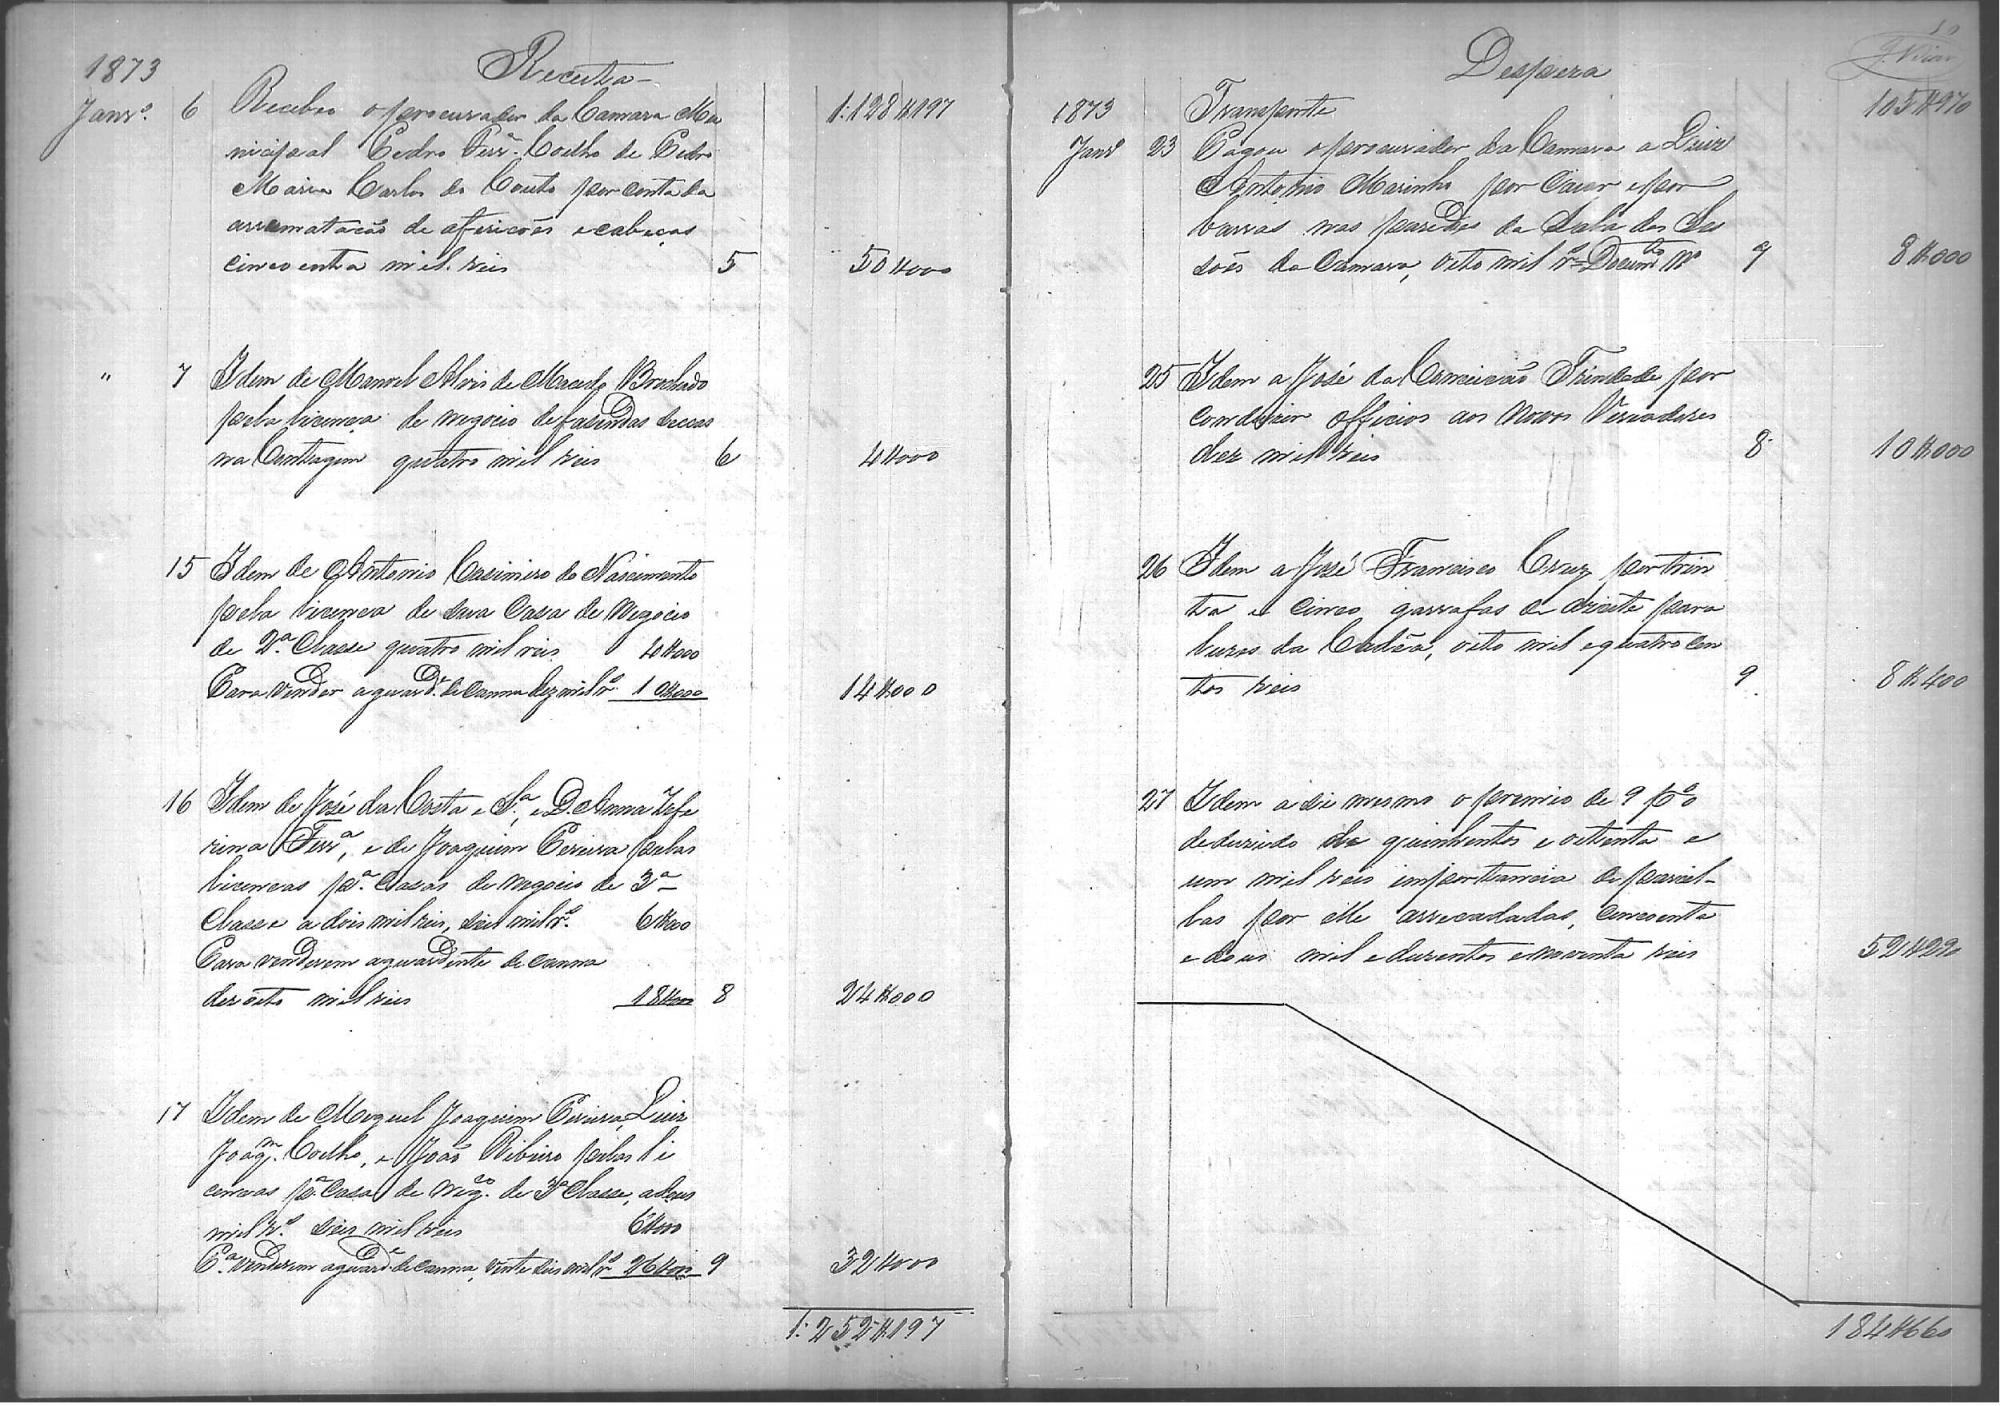 1873
Receita
Janrº. 6 Recebeo o procurador da Camara Mu 1:128$197
nicipal Pedro Ferrª Coelho de Pedro
Maria Carlos do Couto por conta da
arrematacão de afiricões e cabeças
cincoenta mil reis 5 50$000
" 7 Idem de Manoel Alvis de Macedo Brochado
pela licença de negocio de fasendas seccas
na Contagem quatro mil reis 6 4$000
15 Idem de Antonio Casimiro do Nascimento
pela licenca de sua Casa de Negocio
de 2ª Classe quatro mil reis 4$000
Para vender aguardᵉ de canna dez mil rˢ 10$000 14$000
16 Idem de José da Costa e Sª, e D. Anna Zefe
rina Ferrª, e de Joaquim Pereira pelas
licencas pª. Casas de negocio de 3ª
Classe a dois mil reis, seis mil rˢ. 6$000
Para venderem aguardente de canna
dezoito mil reis 18$000 8 24$000
17 Idem de Miguel Joaquim Pereira, Luiz
Joaqᵐ. Coelho, e João Ribeiro pelas li
cencas pª Casa de negᶜᵒ. de 3ª Classe, a dous
mil rˢ. seis mil reis 6$000
Pª venderem aguardᵉ de canna, vinte seis mil rˢ 26$000 9 32$000
1:252$197
10
Despeza
1873 Transporte 105$970
Janrº 23 Pagou o procurador da Camara a Luiz
Antonio Marinho por caiar e por
barras nas paredes da Sala das Ses
sões da Camara, oito mil rˢ Documᵗᵒ Nº 7 8$000
25 Idem a José da Conceicão Trindade por
conduzir officios aos Novos Veriadores
dez mil reis 8 10$000
26 Idem a José Francisco Cruz por trin
ta e cinco garrafas de azeite para
luzes da Cadêa, oito mil e quatro cen
tos reis 9 8$400
27 Idem a si mesmo o premio de 9 pº%
deduzido de quinhentos e oitenta e
um mil reis importancia de parcel-
las por elle arrecadadas, cincoenta
e dous mil e duzentos e noventa reis 52$290
184$660